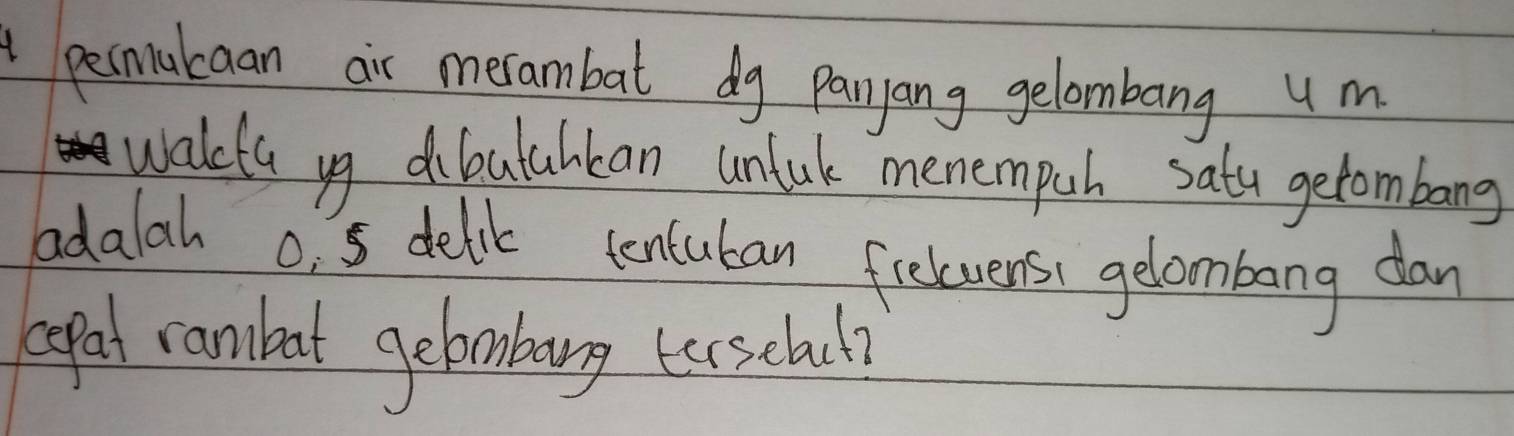 4 permukaan air merambat dg panjang gelombang 4 m.
waktu yg dibutuhkan untuk menempuh satu gelombang
adalah 0,5 detik tentukan frekuensi gelombang dan
cepat rambat gelombang tersebut?